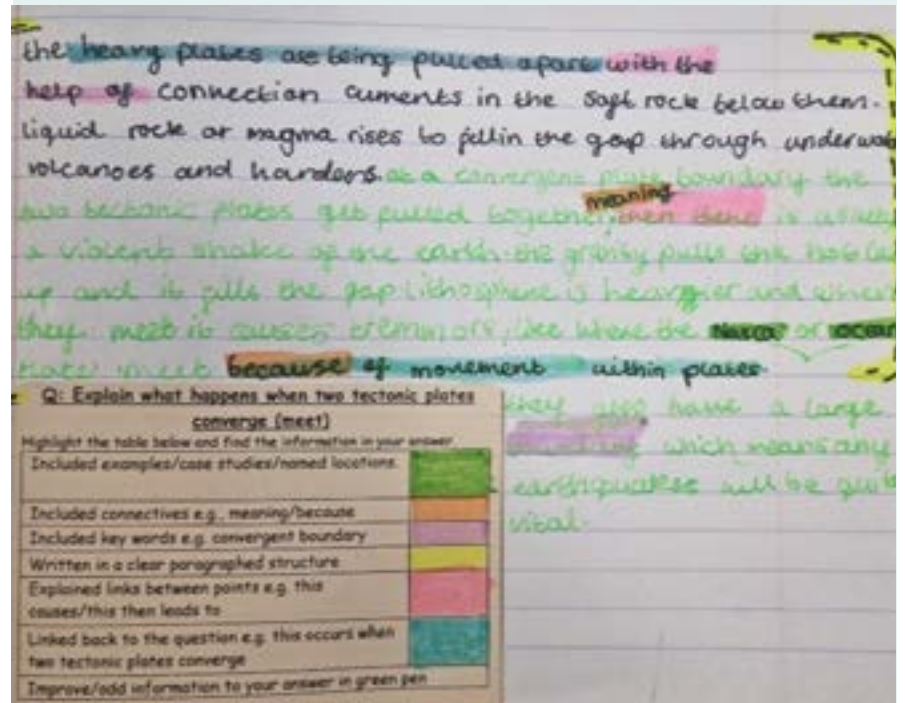 the heavy plates are being pulled apart with the
help of connection currents in the soft rock below them.
liquid rock or magma rises to fill in the gap through underwat
volcanoes and hardens. at a convergent plate boundary the
meaning
two tectonic plates get pulled together, then there is
a violent shake of the earth. the gravity pulls
up and it fills the gap Lithosphere is heavier and when
they meet it causes, like where the Nazca or ocean
plates meet because of movement within plates.
they also have a large
which means any
earthquakes will be quite
vital.
Q: Explain what happens when two tectonic plates
converge (meet)
Highlight the table below and find the information in your answer
Included examples/case studies/named locations.
Included connectives e.g., meaning/because
Included key words e.g. convergent boundary
Written in a clear paragraphed structure
Explained links between points e.g. this
causes/this then leads to
Linked back to the question e.g. this occurs when
two tectonic plates converge
Improve/add information to your answer in green pen